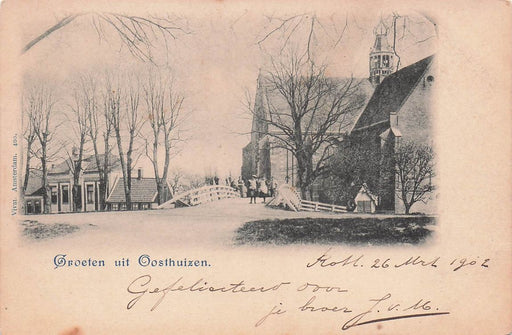 Vivat Amsterdam. 405.
Groeten uit Oosthuizen.
26 Mrt 1902
Gefeliciteerd voor
je broer J. v. M.